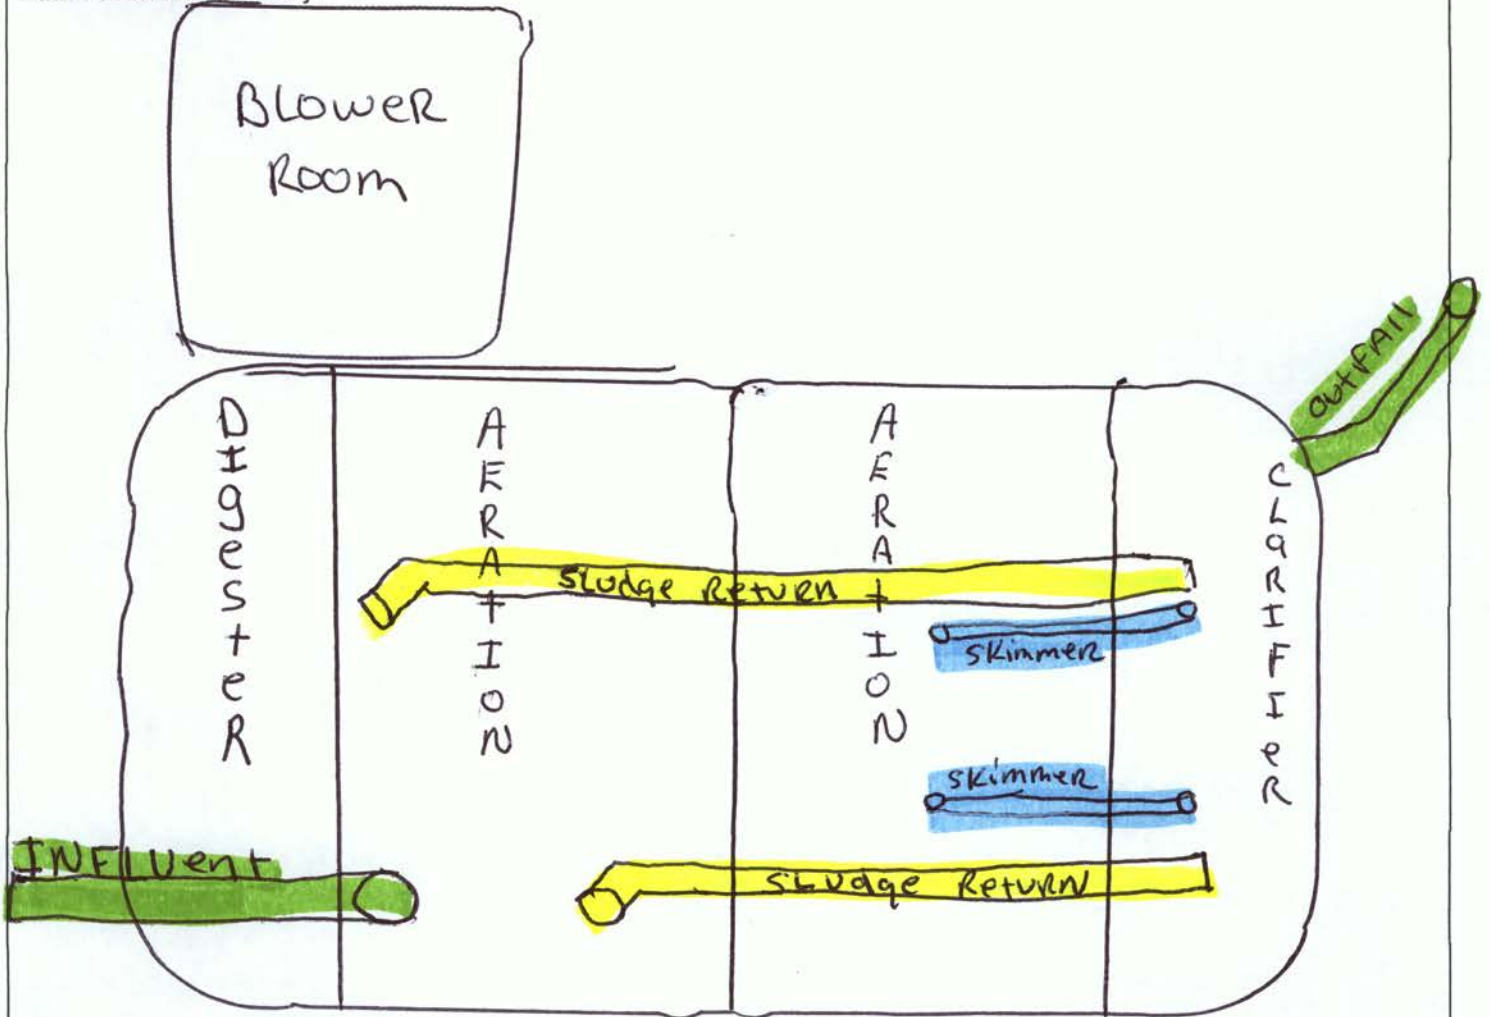 BLOWER
ROOM
OUTFAll
DIgesteR
AERAtION
AERAtION
CLaRIFIeR
SLudge RetuRN
SKimmeR
SKimmeR
INFLUent
SLUdge RetURN